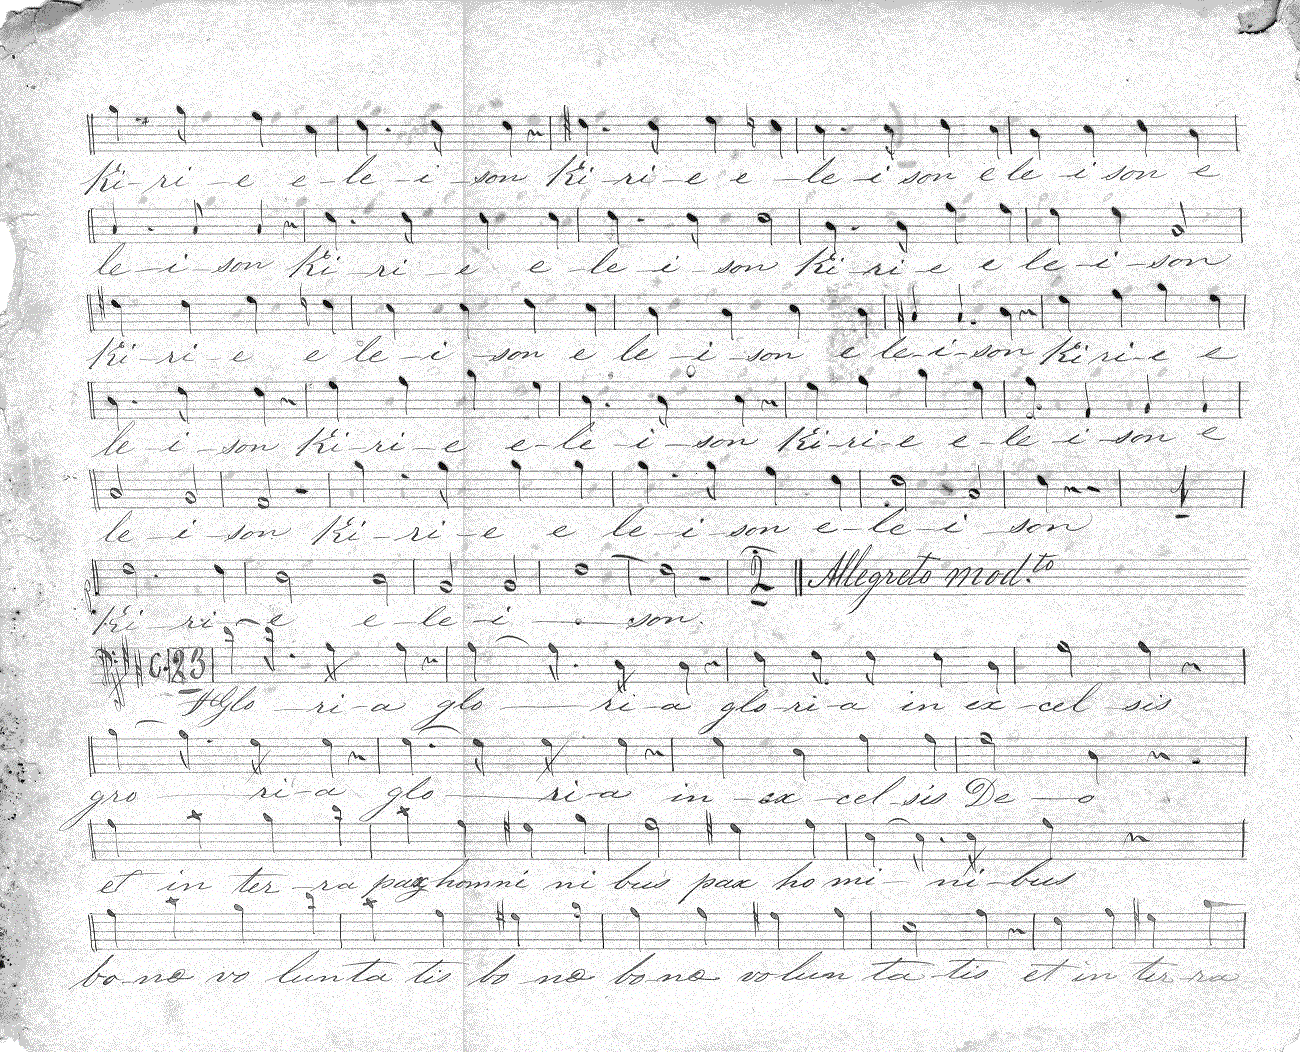 Ki-ri-e e-le-i-son Ki-ri-e e-le-i son e le-i son e
le-i-son Ki-ri-e e-le-i son Ki-ri-e e le-i-son
Ki-ri-e e le-i-son e le-i-son e le-i-son Ki ri-e e
le-i-son Ki-ri-e e-le-i-son Ki-ri-e e-le-i-son e
le-i-son Ki-ri-e e le-i-son e-le-i son
2 Allegreto mod.to
Ki-ri-e e-le-i-son.
C. 23
Glo-ri-a glo-ri-a glo-ri-a in ex-cel-sis
gro-ri-a glo-ri-a in-ex-cel-sis De-o
et in ter-ra pax homni ni bus pax ho mi-ni-bus
bo-na vo lunta tis bo na bo-na volun ta-tis et in ter-ra